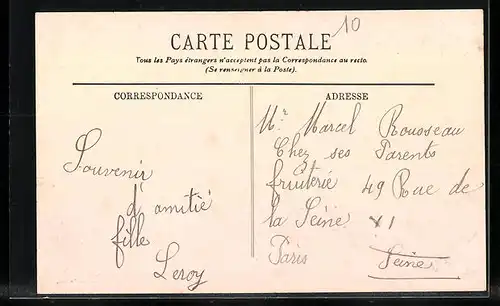 10
CARTE POSTALE
Tous les Pays étrangers n'acceptent pas la Correspondance au recto.
(Se renseigner à la Poste).
CORRESPONDANCE
Souvenir
d'amitié
fille
Leroy
ADRESSE
Mr Marcel Rousseau
Chez ses Parents
fruiterie 49 Rue de
la Seine XI
Paris Seine